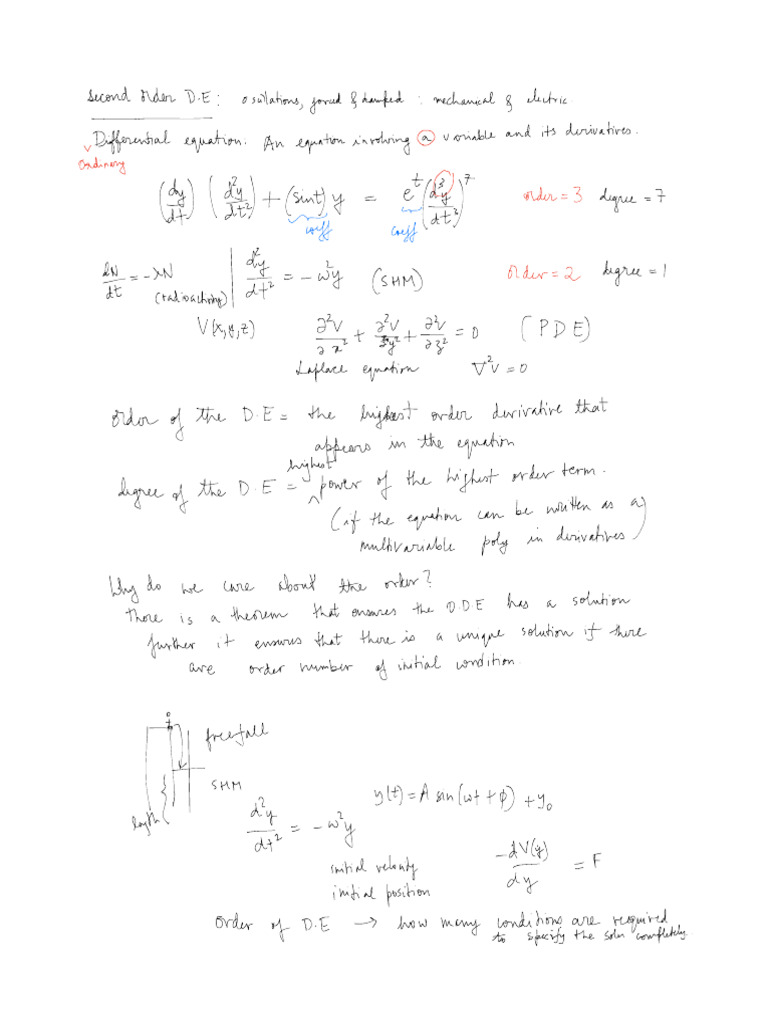 Second Order D.E: oscillations, forced & damped : mechanical & electric.
Differential equation: An equation involving a variable and its derivatives.
Ordinary
(dy/dt) (d²y/dt²) + (sint) y = e^t (d³y/dt²)^7 order = 3 degree = 7
coeff coeff
dN/dt = -λN (radioactivity) | d²y/dt² = -ω²y (SHM) order = 2 degree = 1
V(x,y,z) ∂²V/∂x² + ∂²V/∂y² + ∂²V/∂z² = 0 (PDE)
Laplace equation ∇²V = 0
order of the D.E = the highest order derivative that
appears in the equation
degree of the D.E = highest power of the highest order term.
(if the equation can be written as a
multivariable poly in derivatives)
Why do we care about the order?
There is a theorem that ensures the O.D.E has a solution
further it ensures that there is a unique solution if there
are order number of initial condition.
freefall
SHM
length
y(t) = A sin(ωt + φ) + y₀
d²y/dt² = -ω²y
-dV(y)/dy = F
initial velocity
initial position
order of D.E → how many conditions are required
to specify the soln completely.